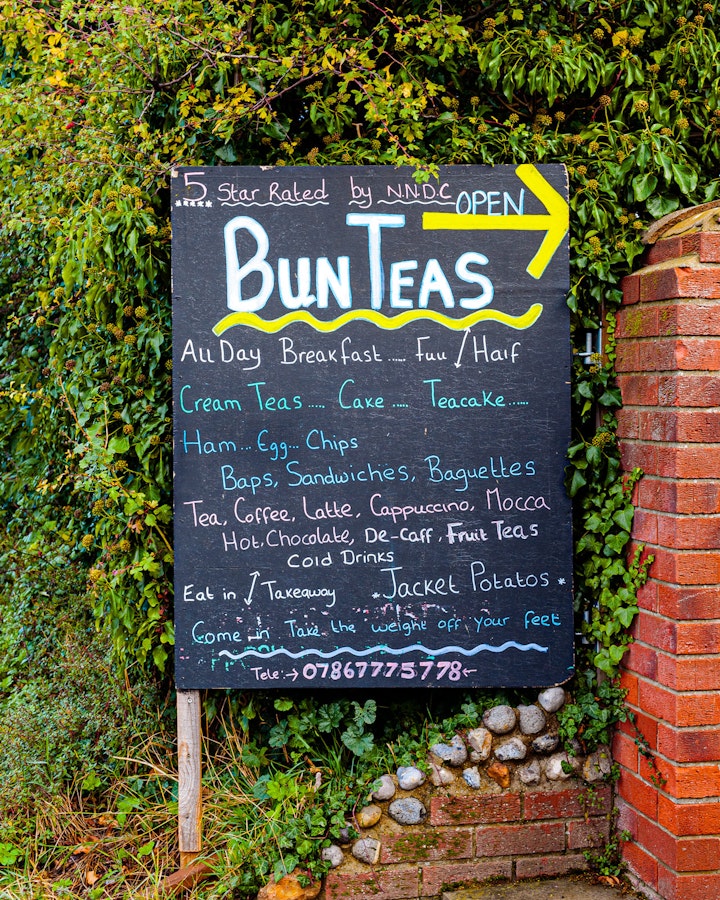 5 Star Rated by N.N.D.C OPEN
*****
BUN TEAS
All Day Breakfast ..... Full / Half
Cream Teas ..... Cake ..... Teacake ......
Ham... Egg... Chips
Baps, Sandwiches, Baguettes
Tea, Coffee, Latte, Cappuccino, Mocca
Hot, Chocolate, De-Caff, Fruit Teas
Cold Drinks
Eat in / Takeaway *Jacket Potatos*
Come in Take the weight off your feet
Tele:→ 07867775778←